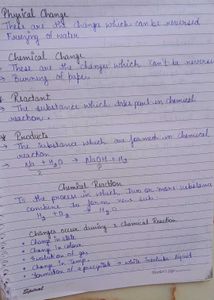 Physical Change
These are the changes which can be reversed
Freezing of water
Chemical Change
→ These are the changes which can't be reversed
→ Burning of paper.
* Reactant
→ The substance which take part in chemical
reaction.
* Products
→ The substance which are formed in chemical
reaction
→ Na + H2O → NaOH + H2
2 2
Chemical Reaction
Is the process in which Two or more substance
combine to form new sub.
H2 + O2 → H2O
Changes occur during a Chemical Reaction
• Change in state
• Change in colour
• Evolution of gas
• Change in Temp.
• formation of a precipitate → white insoluble liquid
Special